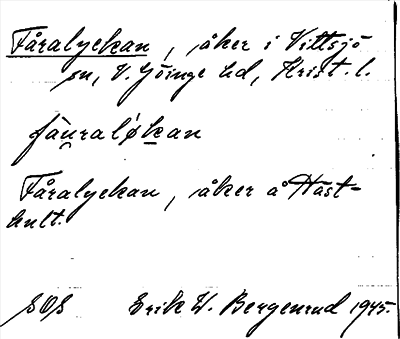 Fåralyckan, åker i Vittsjö
sn, V. Göinge hd, Krist. l.
fàuralǿkan
Fåralyckan, åker å Hast-
hult.
SOS Erik W. Bergenrud 1945.